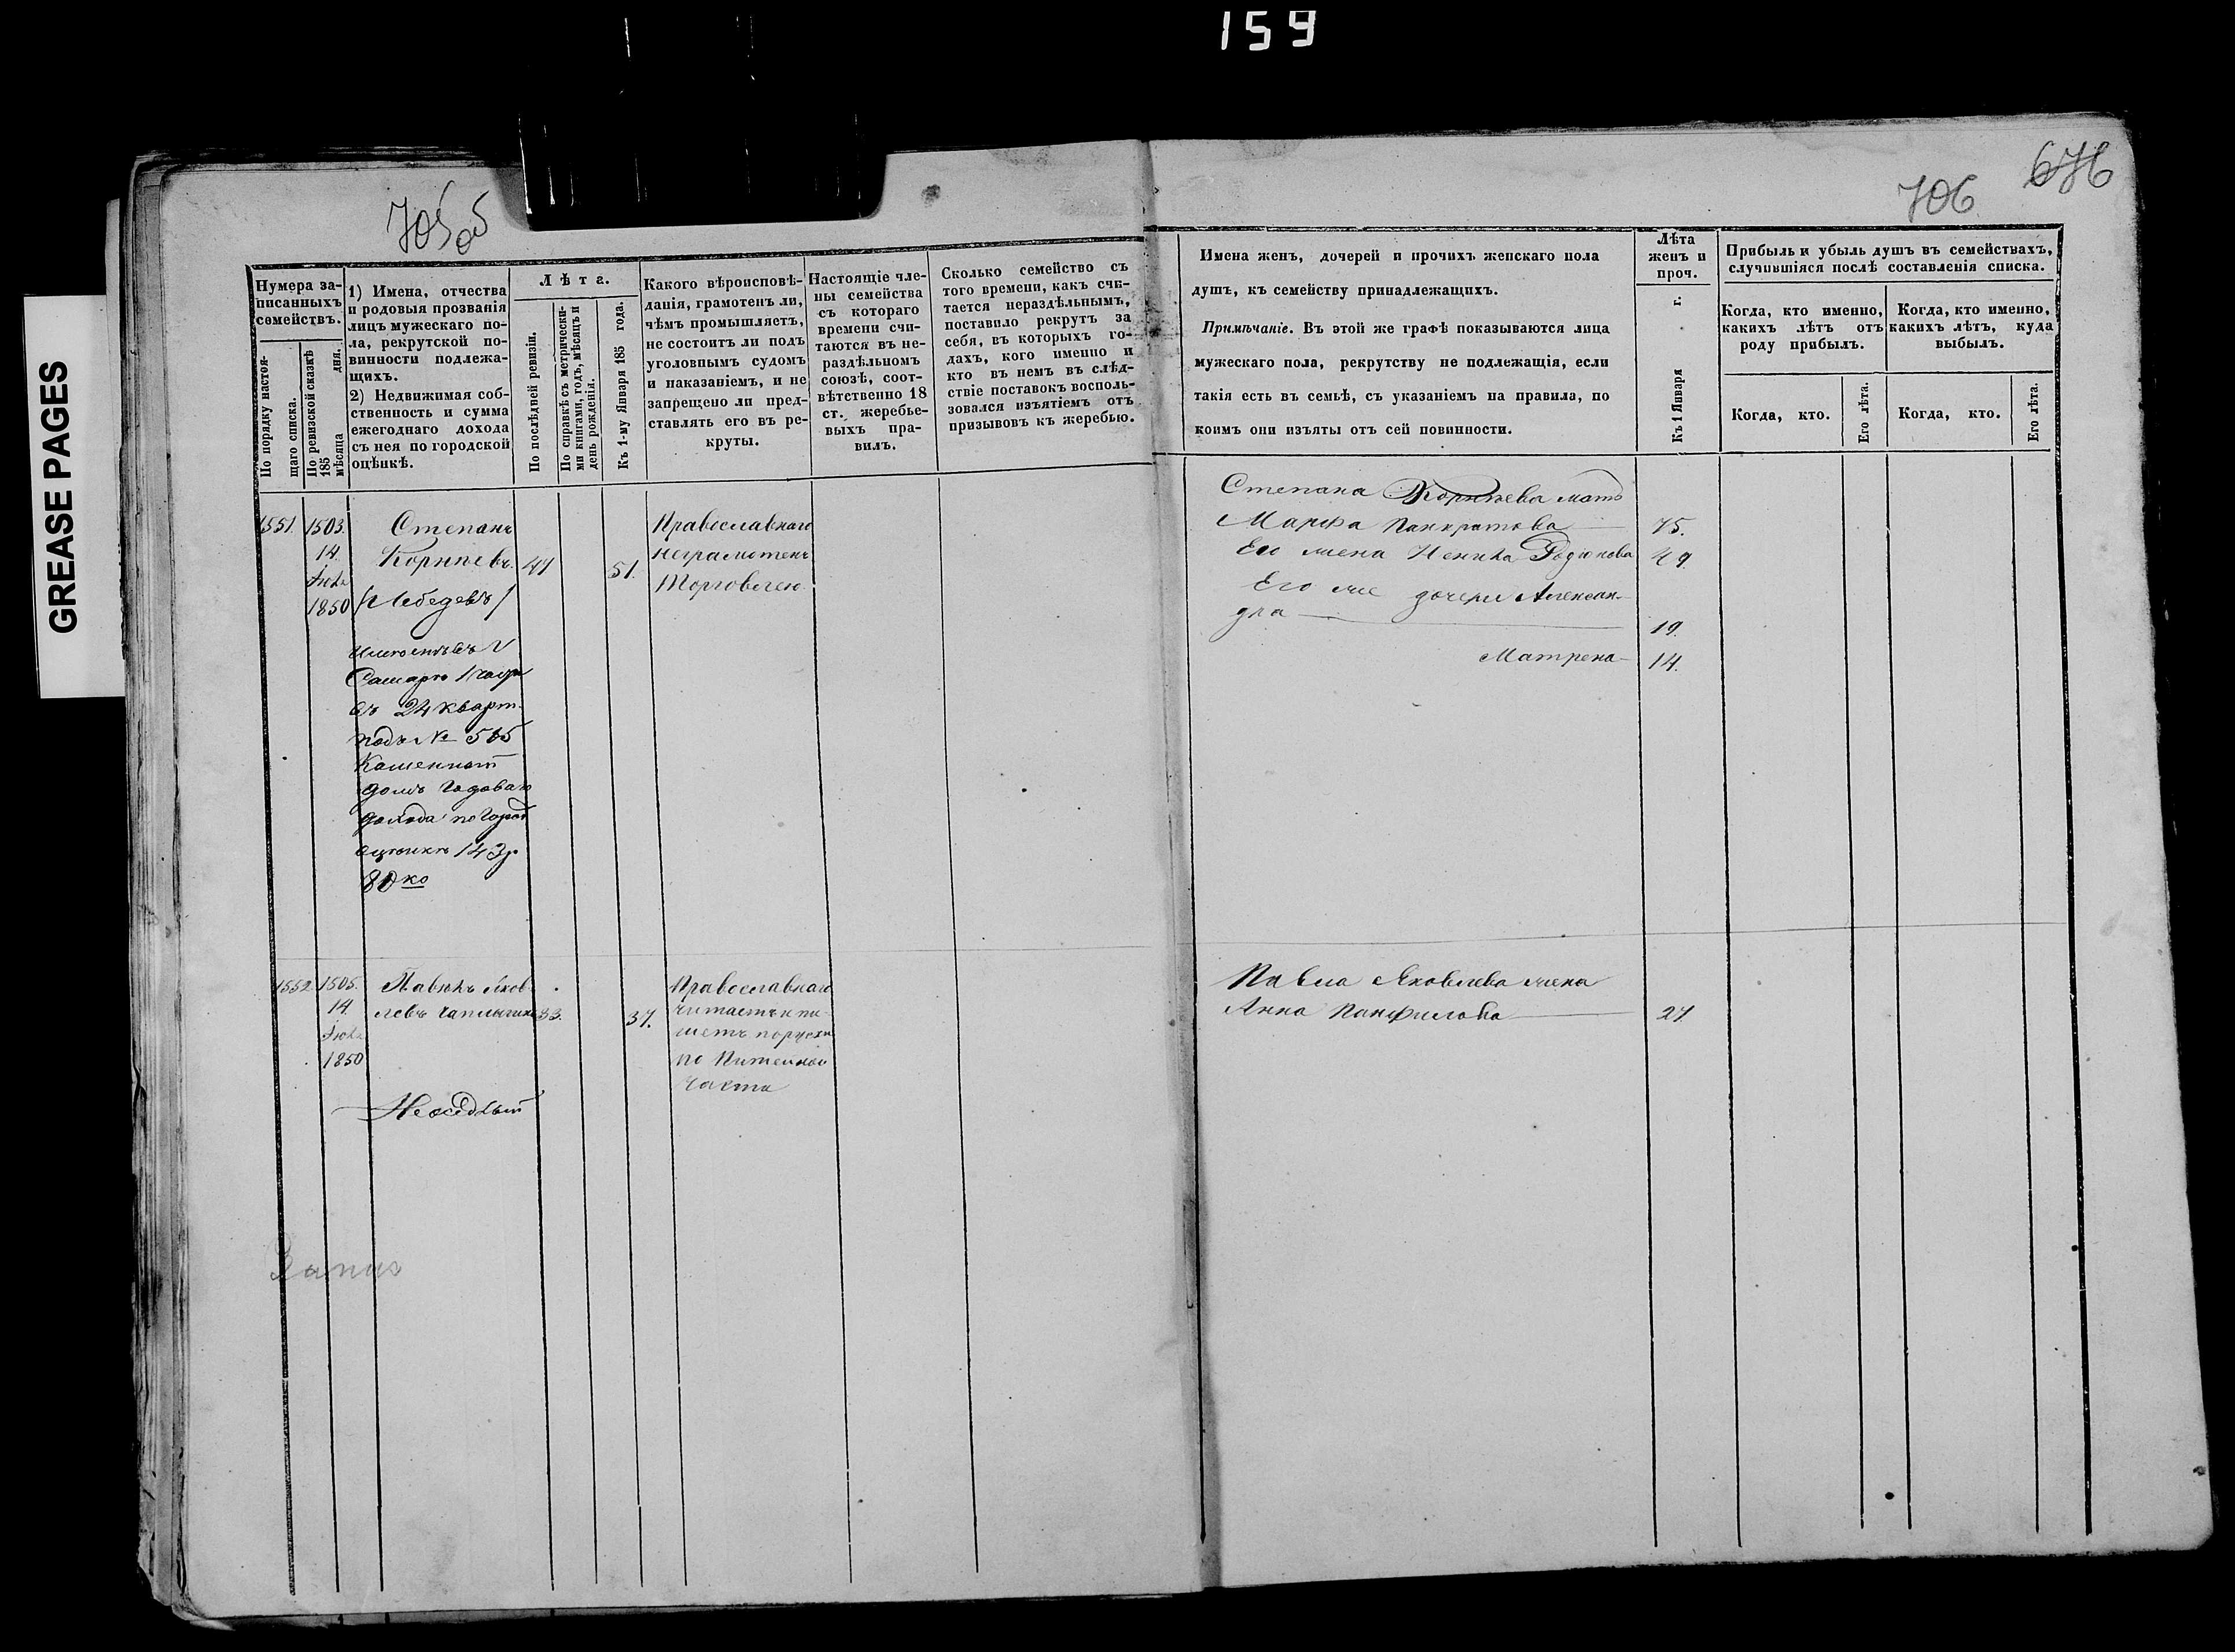 159
GREASE PAGES
705 об
706
676
Нумера за-
писанныхъ
семействъ.
По порядку настоя-
щаго списка.
По ревизской сказкѣ
185 дня.
мѣсяца
1) Имена, отчества
и родовыя прозванія
лицъ мужескаго по-
ла, рекрутской по-
винности подлежа-
щихъ.
2) Недвижимая соб-
ственность и сумма
ежегоднаго дохода
съ нея по городской
оцѣнкѣ.
Лѣта.
По послѣдней ревизіи.
По справкѣ съ метрически-
ми книгами, годъ, мѣсяцъ и
день рожденія.
Къ 1-му Января 185 года.
Какого вѣроисповѣ-
данія, грамотенъ ли,
чѣмъ промышляетъ,
не состоитъ ли подъ
уголовнымъ судомъ
и наказаніемъ, и не
запрещено ли пред-
ставлять его въ ре-
круты.
Настоящіе чле-
ны семейства
съ котораго
времени счи-
таются въ не-
раздѣльномъ
союзѣ, соот-
вѣтственно 18
ст. жеребье-
выхъ пра-
вилъ.
Сколько семейство съ
того времени, какъ счи-
тается нераздѣльнымъ,
поставило рекрутъ за
себя, въ которыхъ го-
дахъ, кого именно и
кто въ немъ въ слѣд-
ствіе поставокъ восполь-
зовался изъятіемъ отъ
призывовъ къ жеребью.
Имена женъ, дочерей и прочихъ женскаго пола
душъ, къ семейству принадлежащихъ.
Примѣчаніе. Въ этой же графѣ показываются лица
мужескаго пола, рекрутству не подлежащія, если
такія есть въ семьѣ, съ указаніемъ на правила, по
коимъ они изъяты отъ сей повинности.
Лѣта
женъ и
проч.
Къ 1 Января г.
Прибыль и убыль душъ въ семействахъ,
случившіяся послѣ составленія списка.
Когда, кто именно,
какихъ лѣтъ отъ
роду прибылъ.
Когда, кто именно,
какихъ лѣтъ, куда
выбылъ.
Когда, кто.
Его лѣта.
Когда, кто.
Его лѣта.
1551.
1503.
14.
1850
Степанъ
Корнѣевъ.
/Лебедевъ/
Самарѣ 1 части
въ 24 кварт.
подъ №
Каменной
домъ годоваго
дохода по город
оцѣнкѣ 143 р
80 ко
51.
Православнаго
неграмотенъ
Торговлею.
Степана Корнѣева мать
Марфа Панкратова 75.
Его жена Родіонова 49
Его же дочери Александ-
дра 19.
Матрена 14.
1552
1505.
14.
1850
Павелъ Яков-
левъ
33.
37.
Православнаго
читаетъ и пи-
шетъ поруски
по Питейной
части
Неоседлый
Павла Яковлева жена
Анна Панфилова 27